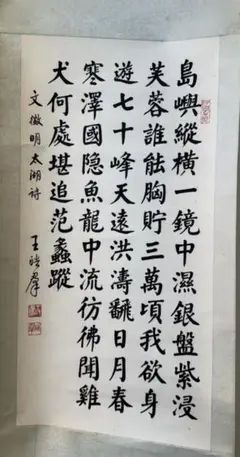 島嶼縱橫一鏡中濕銀盤紫浸
芙蓉誰能胸貯三萬頃我欲身
遊七十峰天遠洪濤飜日月春
寒澤國隐魚龍中流彷彿聞雞
犬何處堪追范蠡蹤
文徵明太湖詩
王羣